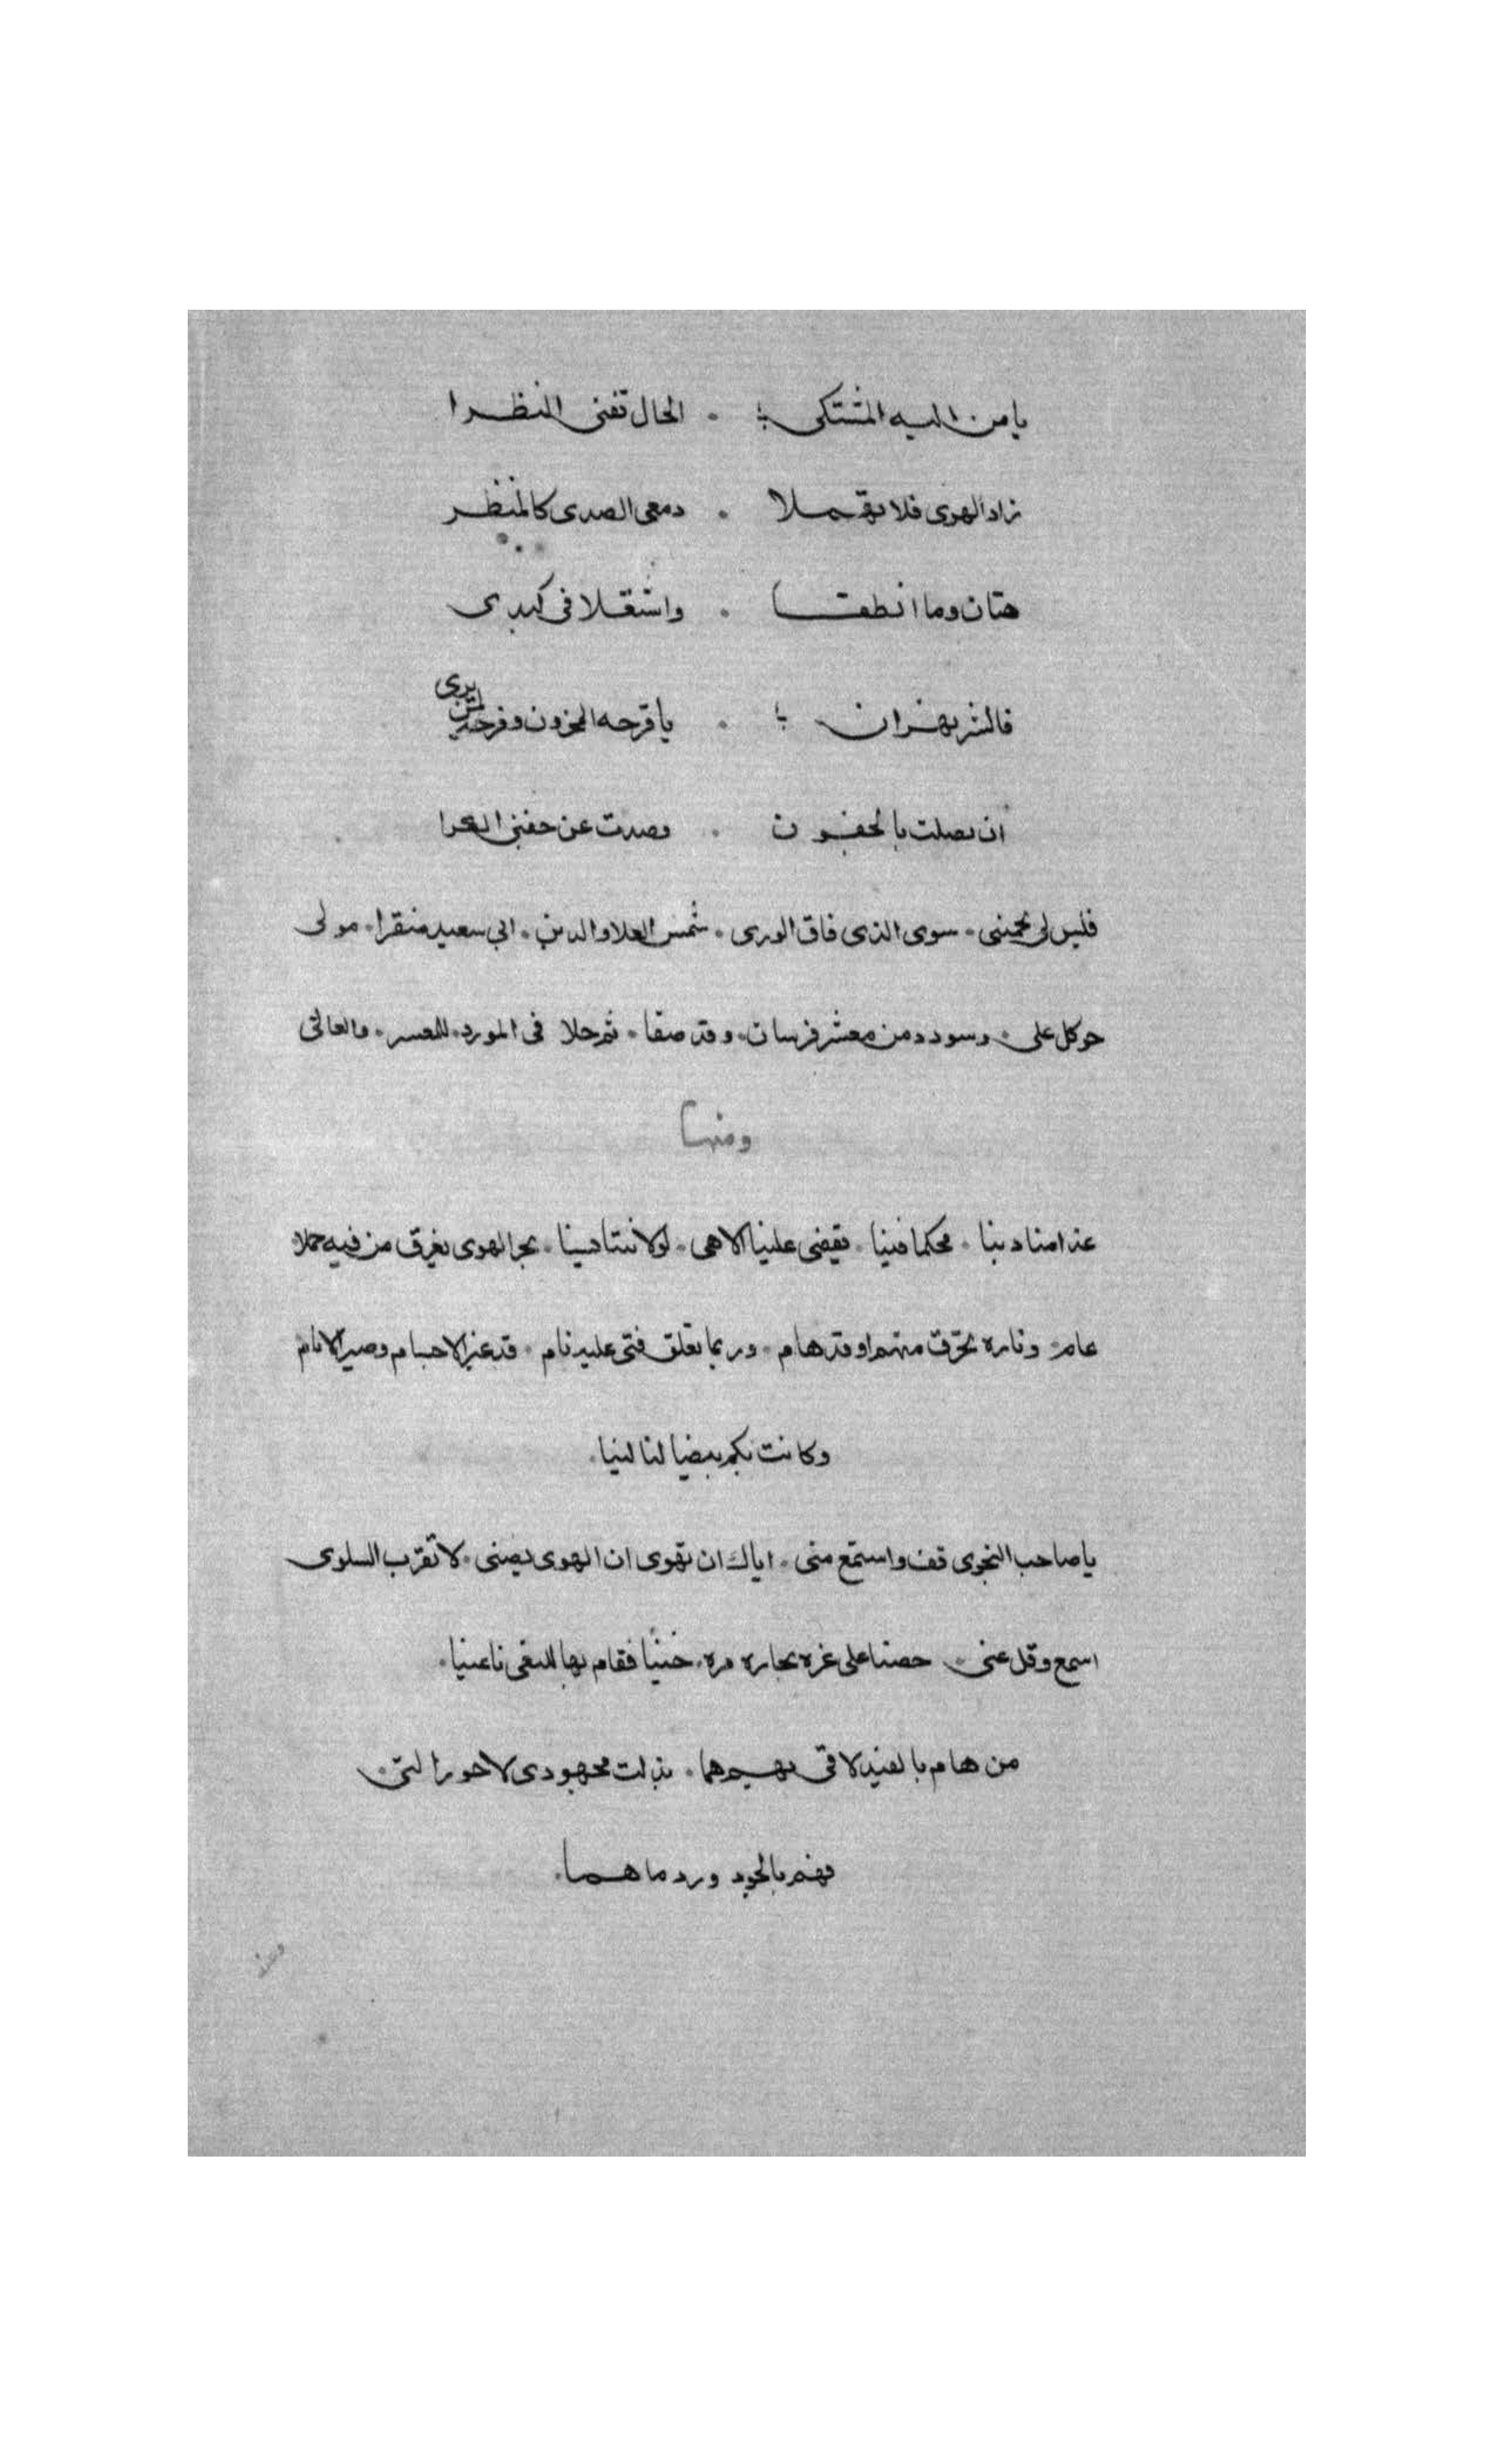 يا من اليه المشتكى ؛ . الحال تغنى النظرا
زاد الهوى فلا تهملا . دمعى الصدى كالمنظر
هتان وما انطفـا . واشتعلا فى كبدى
فالشر بهـران ؛ . يا قرحه المحزون وفرحة لمن يرى
ان نصلت بالجفـون . وصدت عن جفنى الكرا
فليس لى يحمينى . سوى الذى فاق الورى . شمس العلا والدين . ابى سعيد سنقرا . مولى
حوى كل على . وسودد من معشر فرسان . وقد صفا . ثم حلا فى المورد . للمعسر . والعانى
ومنها
عند امنا دينا . محكما فينا . يقضى علينا الاسى . لولا تتاسينا . بحر الهوى يغرق من فيه جهلا
عام . وناره تحرق من هم او قد هام . وربما تعلق فتى عليه نام . قد غير الاجسام وصير الانام
وكانت بكم بيضا لنا لينا .
يا صاحب النجوى قف واستمع منى . اياك ان تهوى ان الهوى يضنى . لا تقرب السلوى
اسمع وقل عنى . حضنا على غره بحاره مره . حينا فقام بها للبغى ناعينا .
من هام بالغيد لاقى بهم هما . بذلت مجهودى لاحور المى .
فهم بالجود ورد ما هما .